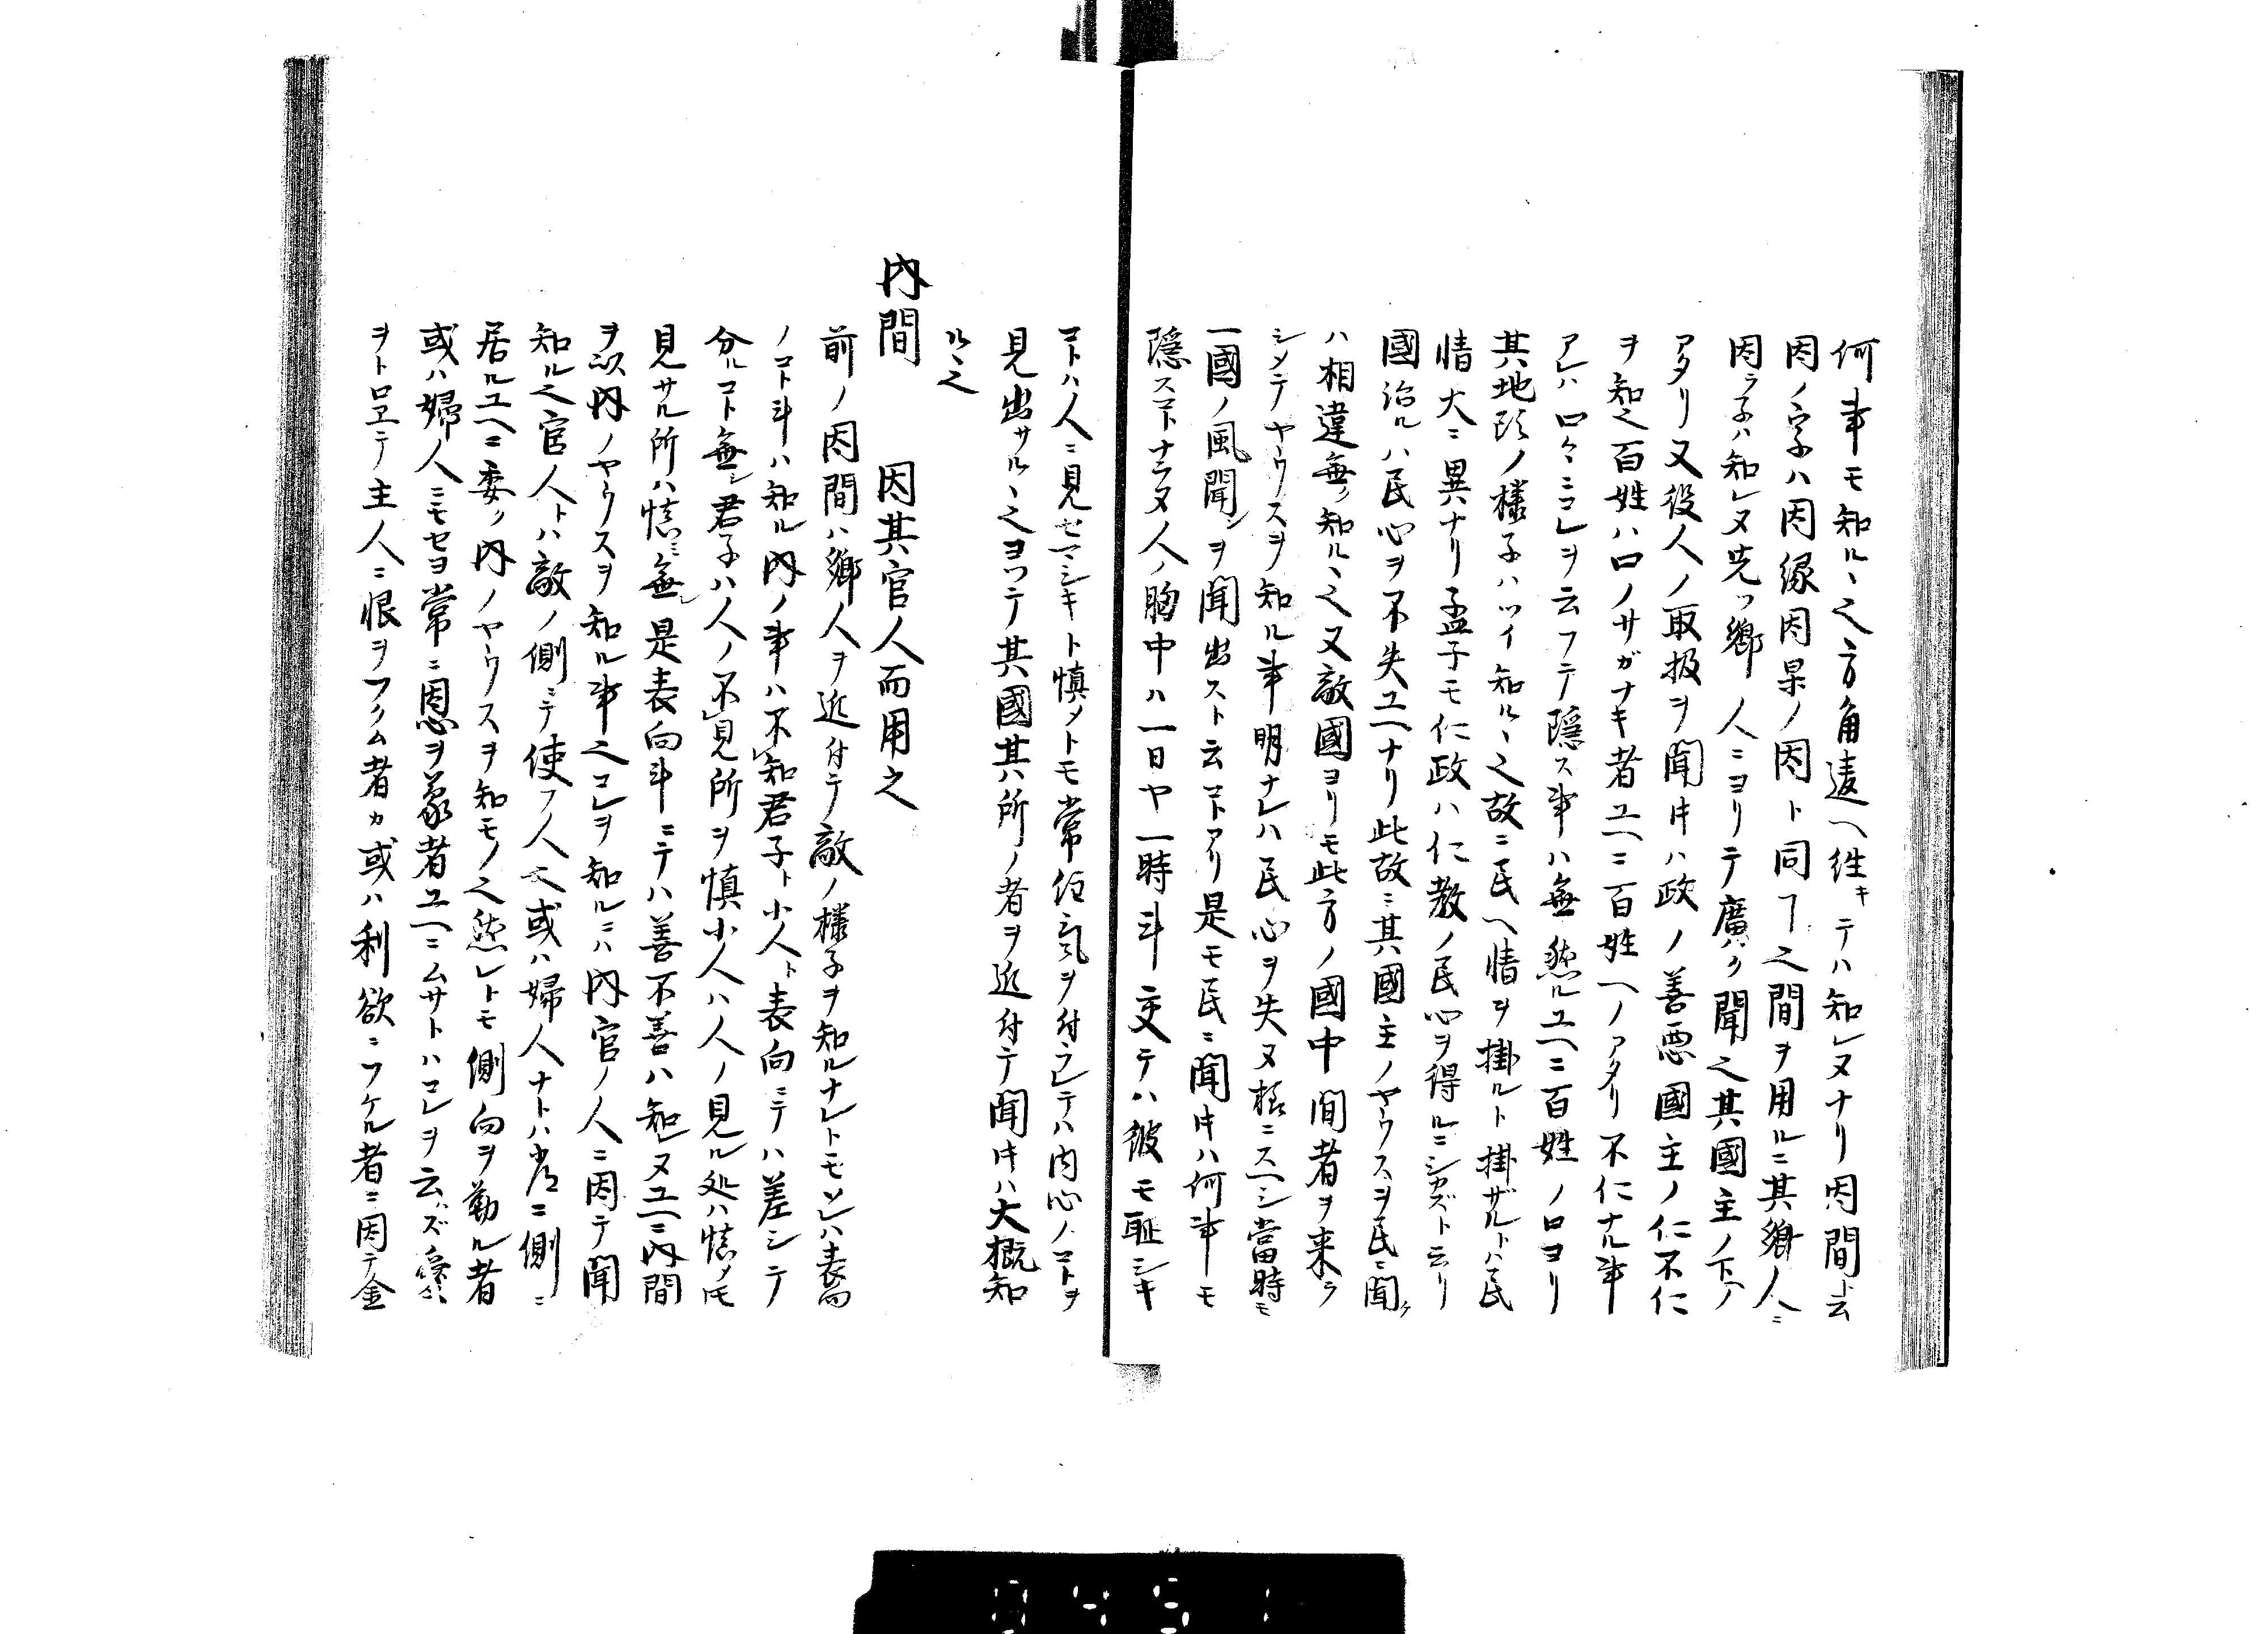 何事モ知ルヽ之方角違ヘ往キテハ知レヌナリ因間ト云
因ノ字ハ因縁因果ノ因ト同フ之間ヲ用ルニ其郷人ニ
因ラ子ハ知レヌ先ツ郷人ニヨリテ廣ク聞之其國主ノ下ノ
アタリ又役人ノ取扱ヲ聞キハ政ノ善悪國主ノ仁不仁
ヲ知之百姓ハ口ノサガナキ者ユヘニ百姓ヘノアタリ不仁ナル事
アレハ口々ニコレヲ云フテ隠ス事ハ無然ルユヘニ百姓ノ口ヨリ
其地頭ノ様子ハツイ知ルヽ之故ニ民ヘ情ヲ掛ルト掛ザルトハ民
情大ニ異ナリ孟子モ仁政ハ仁教ノ民心ヲ得ルニシカズト云リ
國治ルハ民心ヲ不失ユヘナリ此故ニ其國主ノヤウスヲ民ニ聞ク
ハ相違無ク知ルヽ之又敵國ヨリモ此方ノ國中間者ヲ来ラ
シメテヤウスヲ知ル事明ナレハ民心ヲ失ヌ様ニスヘシ當時モ
一國ノ風聞シヲ聞出スト云コトアリ是モ民ニ聞キハ何事モ
隠スコトナラヌ人ノ胸中ハ一日ヤ一時斗交テハ彼モ耻シキ
コトハ人ニ見セマシキト慎メトモ常任氣ヲ付テハ内心ノコトヲ
見出サルヽ之ヨツテ其國其所ノ者ヲ近付テ聞キハ大概知
ルヽ之
内間　因其官人而用之
前ノ因間ハ郷人ヲ近付テ敵ノ様子ヲ知ルナレトモソレハ表向
ノコト斗ハ知ル内ノ事ハ不知君子ト小人ト表向ニテハ差シテ
分ルコト無シ君子ハ人ノ不見所ヲ慎小人ハ人ノ見ル処ハ慎メ圧
見サル所ハ慎ミ無シ是表向斗ニテハ善不善ハ知レヌユヘニ内間
ヲ以内ノヤウスヲ知ル事之コレヲ知ルニハ内官ノ人ニ因テ聞
知ル之官人トハ敵ノ側ニテ使フ人之或ハ婦人ナトハ常ニ側ニ
居ルユヘニ委ク内ノヤウスヲ知モノ之然レトモ側向ヲ勤ル者
或ハ婦人ニモセヨ常ニ恩ヲ蒙者ユヘニムサトハコレヲ云ハズ爰ハ
ヲトロヱテ主人ニ恨ヲフクム者カ或ハ利欲ニフケル者ニ因テ金